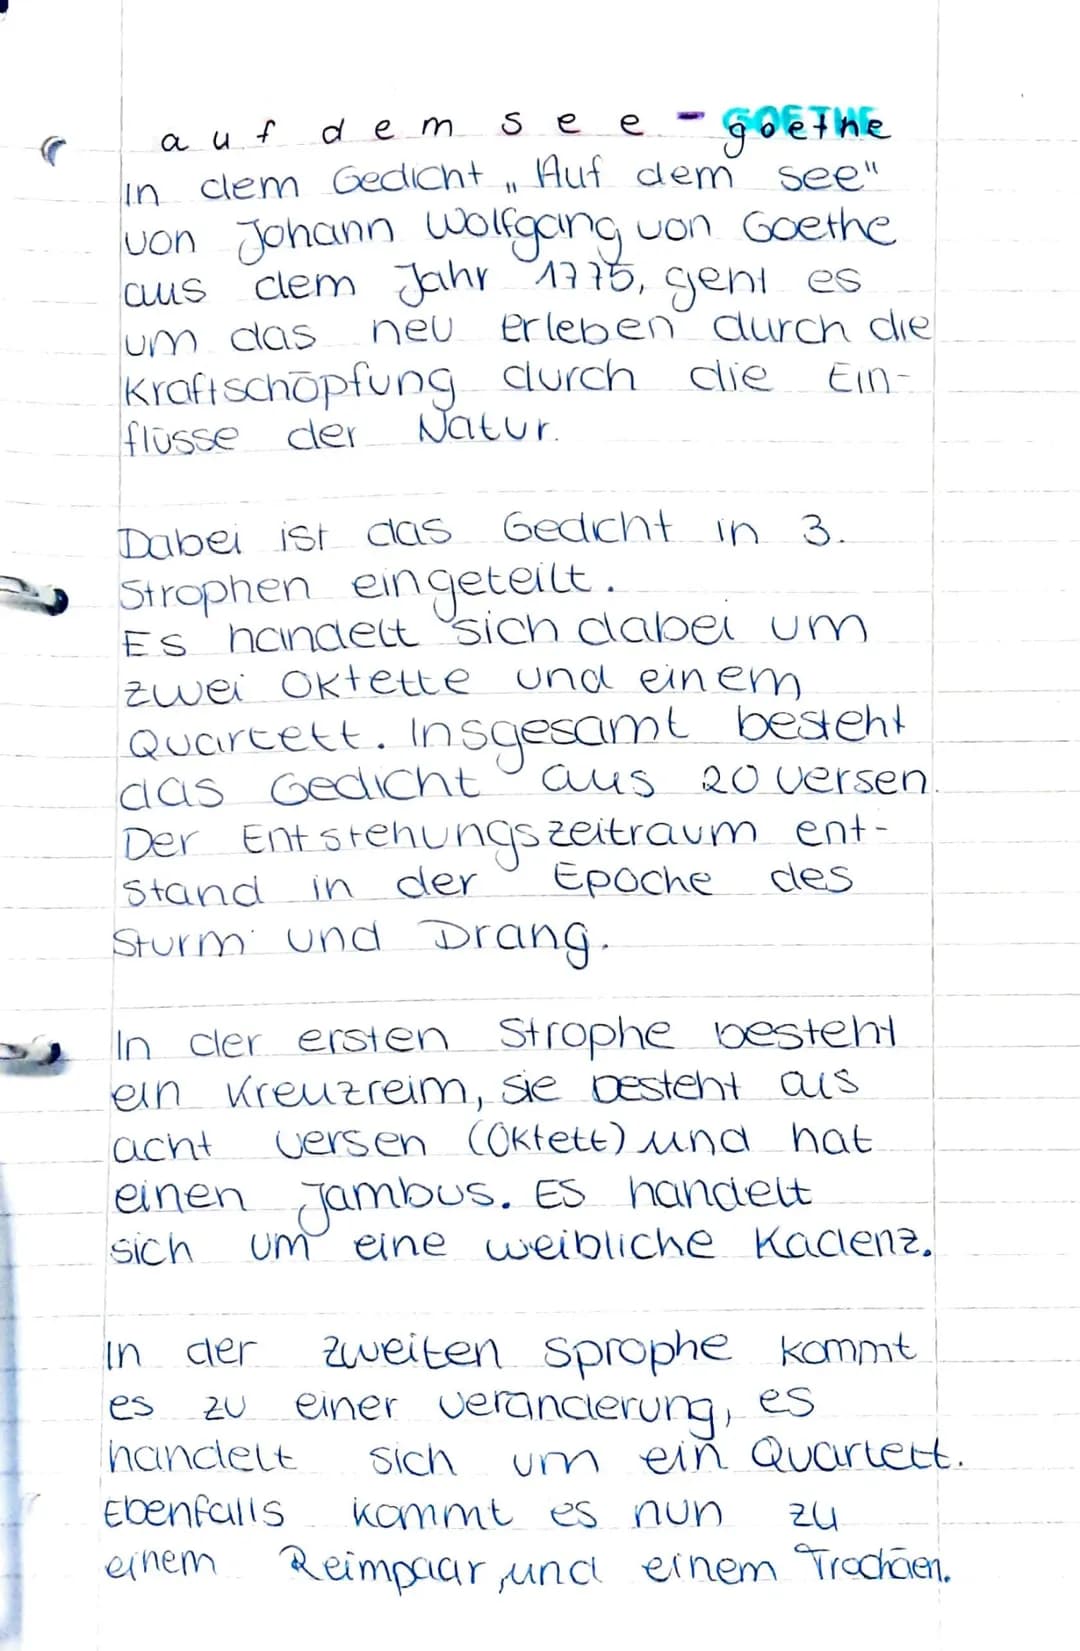 auf dem see - goethe
In dem Gedicht „Auf dem See"
von Johann Wolfgang von Goethe
aus dem Jahr 1775, geht es
um das neu erleben durch die
Kraftschöpfung durch die Ein-
flüsse der Natur.
Dabei ist das Gedicht in 3.
Strophen eingeteilt.
Es handelt sich dabei um
zwei Oktette und einem
Quartett. Insgesamt besteht
das Gedicht aus 20 Versen.
Der Entstehungszeitraum ent-
stand in der Epoche des
Sturm und Drang.
In der ersten Strophe besteht
ein Kreuzreim, sie besteht aus
acht Versen (Oktett) und hat
einen Jambus. Es handelt
sich um eine weibliche Kadenz.
In der zweiten Sprophe kommt
es zu einer Veränderung, es
handelt sich um ein Quartett.
Ebenfalls kommt es nun zu
einem Reimpaar, und einem Trochäen.